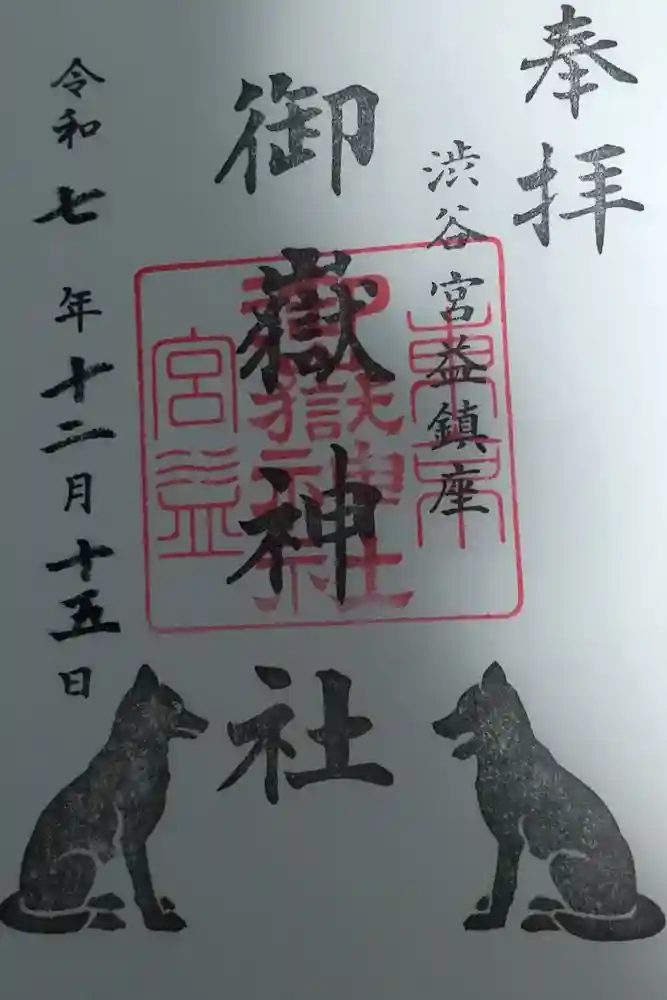 奉拝
渋谷宮益鎮座
御嶽神社
東京
御嶽神社
宮益
令和七年十二月十五日